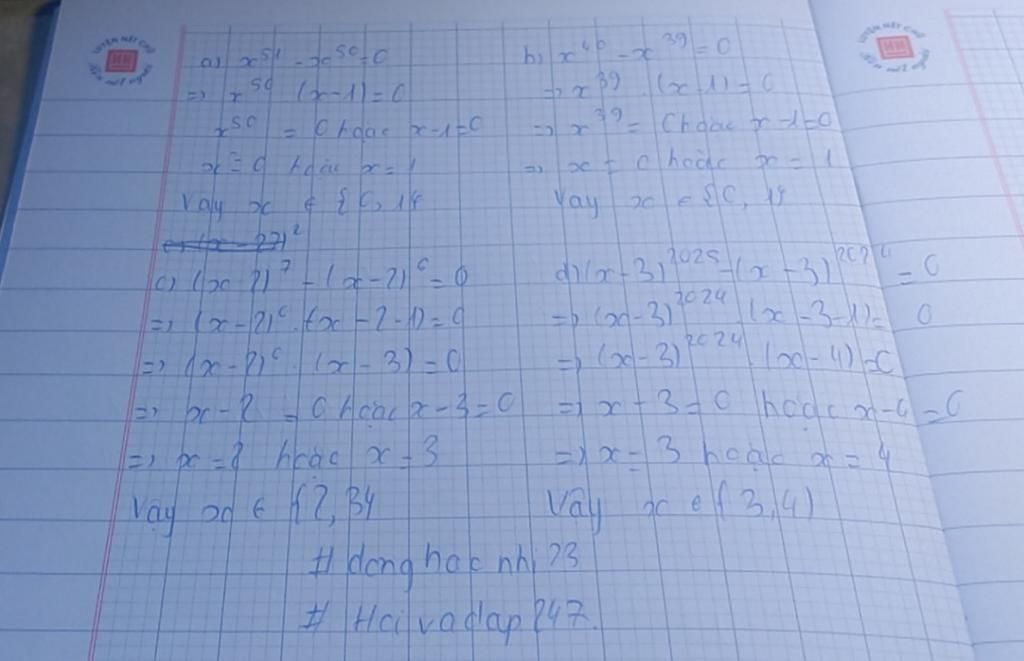 a) x^51 - x^50 = 0
=> x^50 (x-1) = 0
x^50 = 0 hoặc x-1=0
x = 0 hoặc x = 1
Vậy x ∈ {0, 1}
b) x^40 - x^39 = 0
=> x^39 . (x-1) = 0
=> x^39 = 0 hoặc x-1=0
=> x = 0 hoặc x = 1
Vậy x ∈ {0, 1}
c) (x-2)^7 - (x-2)^6 = 0
=> (x-2)^6 . (x-2-1) = 0
=> (x-2)^6 . (x-3) = 0
=> x-2 = 0 hoặc x-3 = 0
=> x = 2 hoặc x = 3
Vậy x ∈ {2, 3}
d) (x-3)^2025 - (x-3)^2024 = 0
=> (x-3)^2024 . (x-3-1) = 0
=> (x-3)^2024 . (x-4) = 0
=> x-3 = 0 hoặc x-4 = 0
=> x = 3 hoặc x = 4
Vậy x ∈ {3, 4}
# dong hoc nhi 23
# Hoi va dap 247.